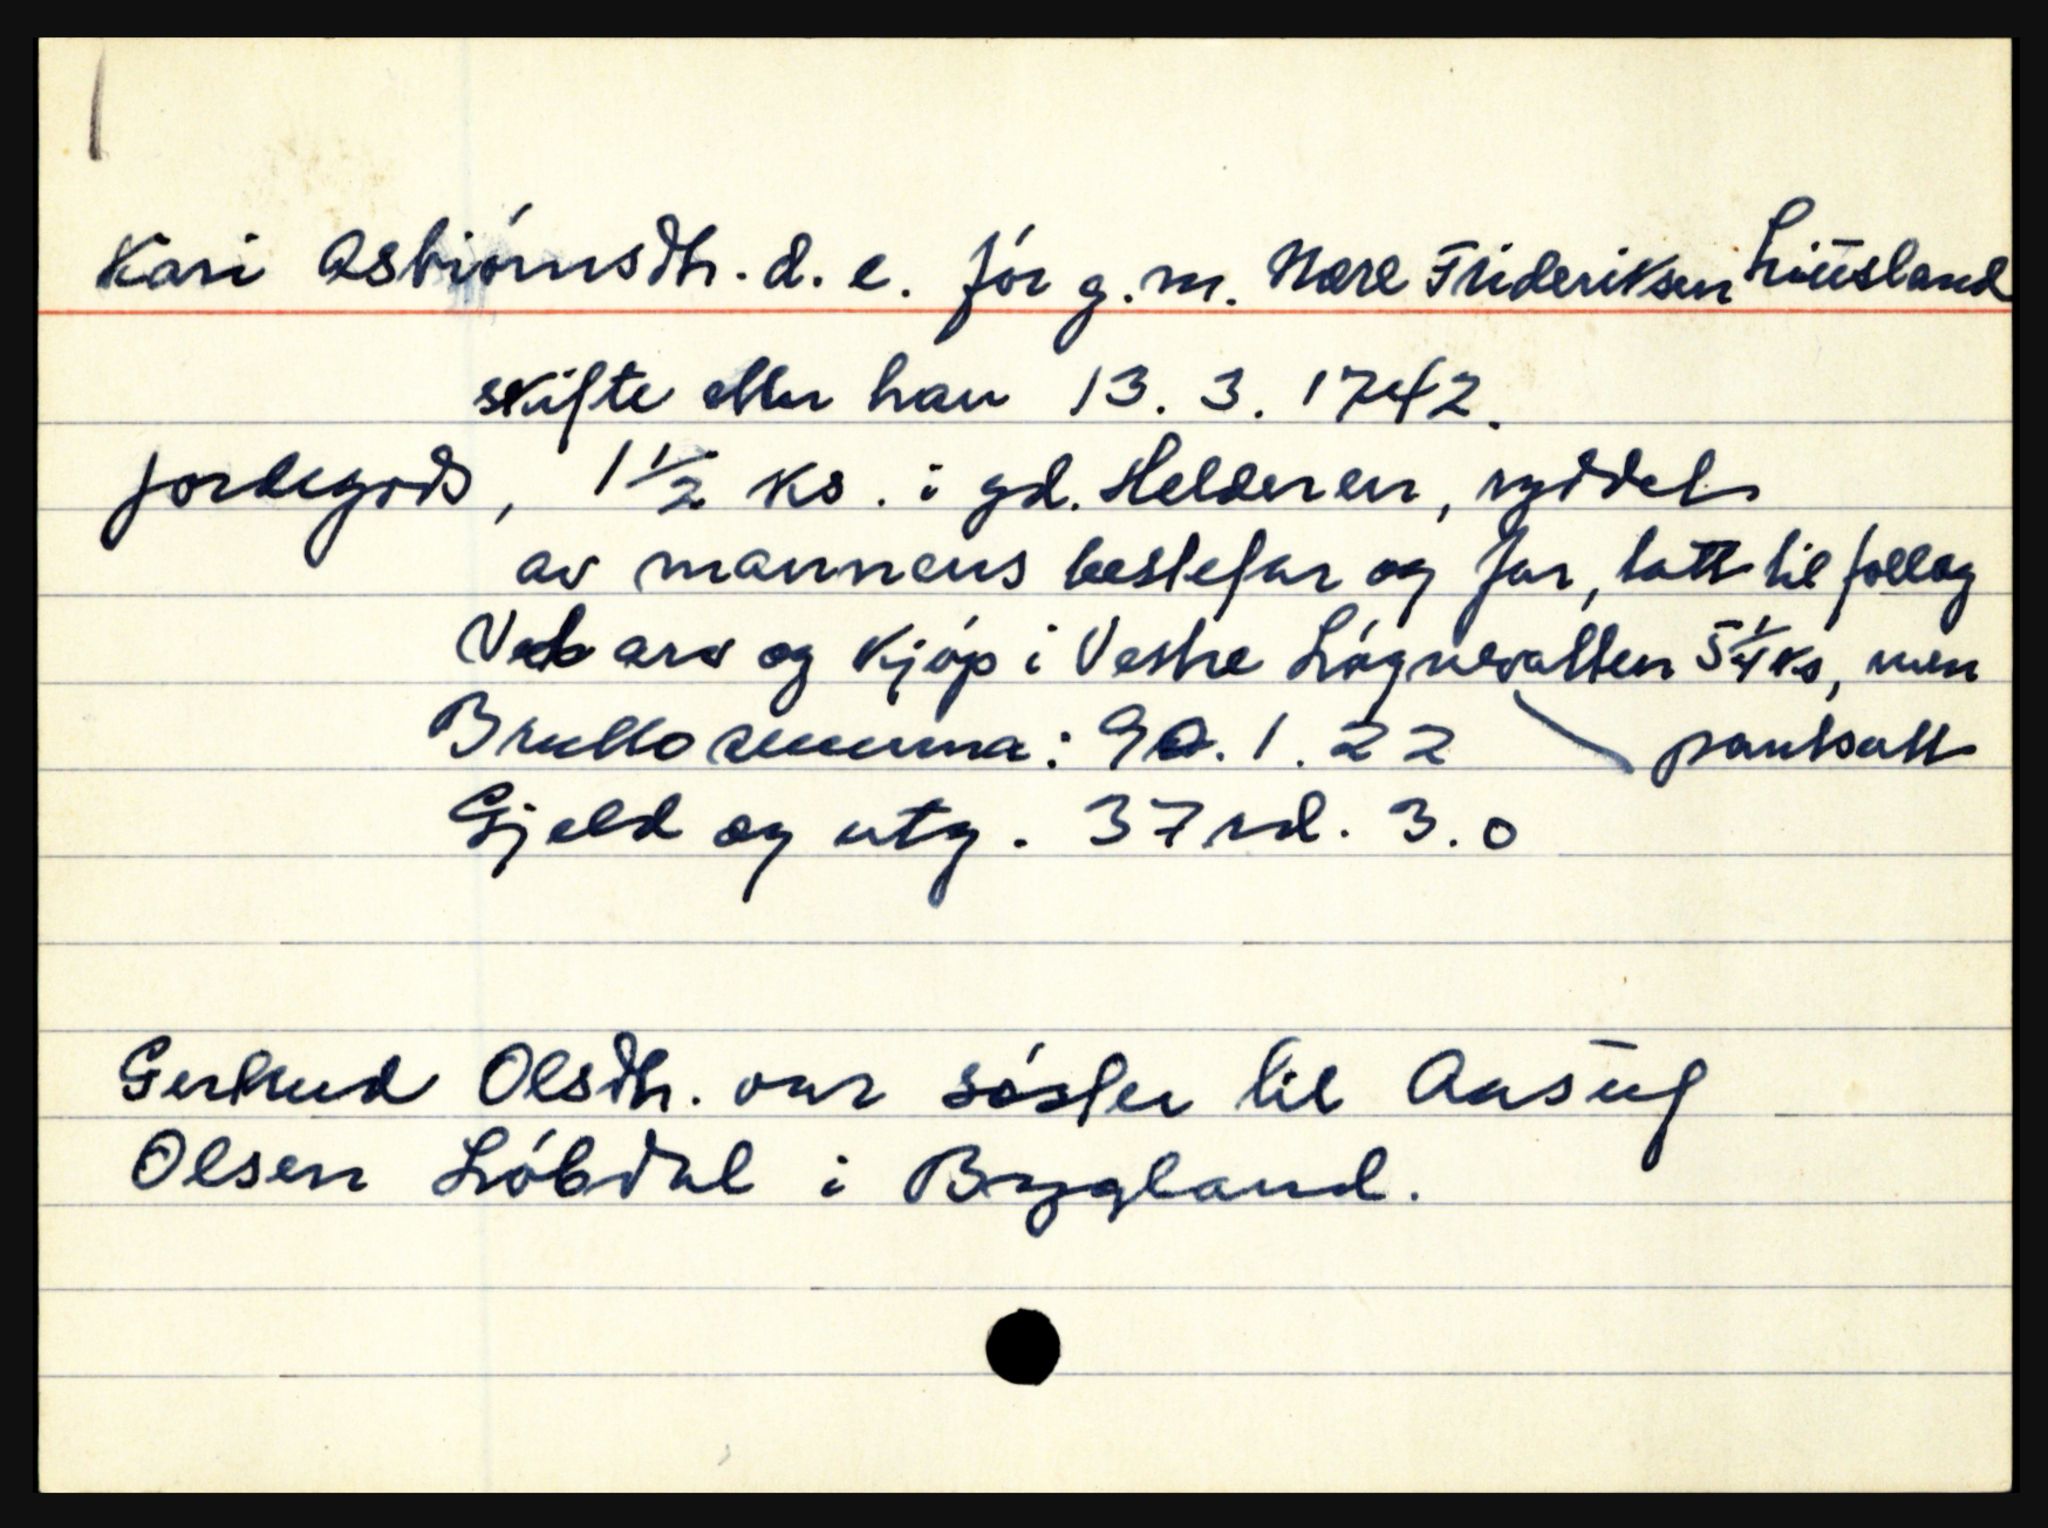 Kari Asbiórnsdtr. d. e. fór g. m. Nere Frideriksen Liúsland
skifte etter han 13. 3. 1742.
jordegods, 1 1/2 ks. i gd. Helderen, ryddet
av mannens bestefar og far, tatt til follog
Ved arv og kjóp i Vestre Lógnevatten 5 1/4 ks, men
pantsatt
Brutto summa: 90. 1. 22
Gjeld og utg. 37 rd. 3. 0
Gertrud Olsdtr. var sóster til Aasúlf
Olsen Lóbdal i Bygland.